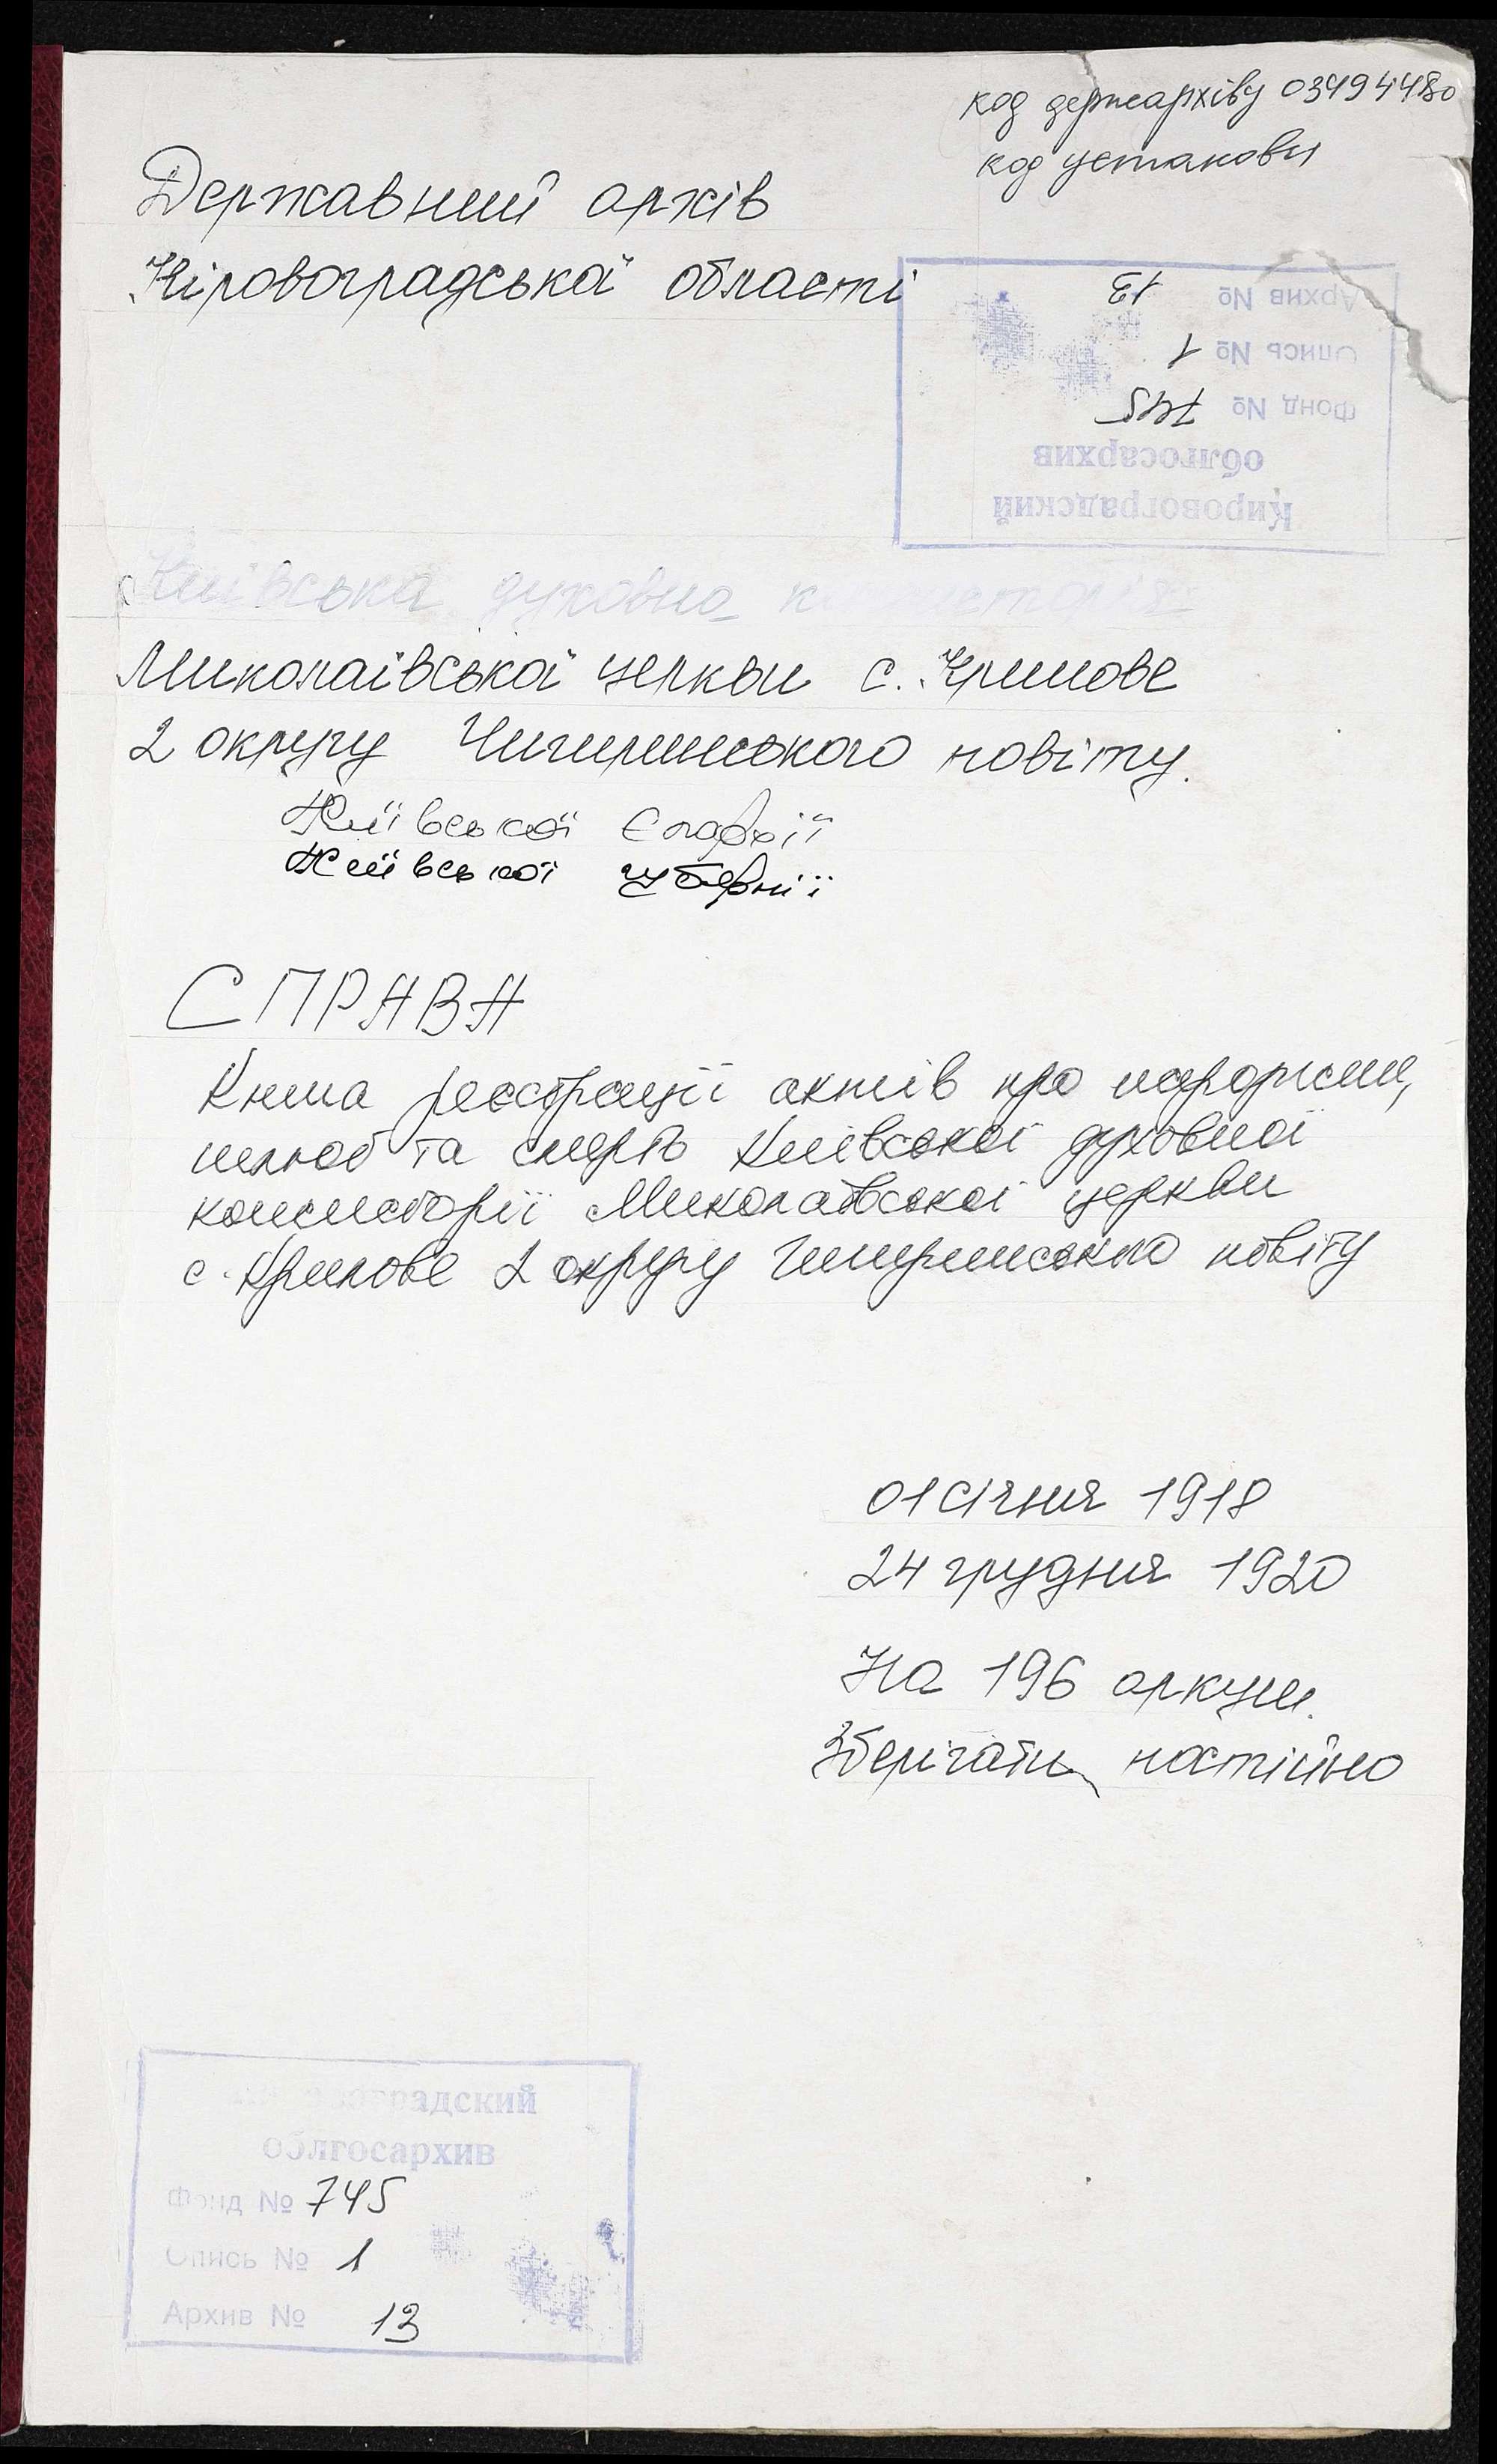 код держархіву 03494480
код установи
Державний архів
Кіровоградської області
Кировоградский
облгосархив
Фонд № 745
Опись № 1
Архив № 13
Київська духовна консисторія
Миколаївської церкви с. Крилове
2 округу Чигиринського повіту.
Київської Єпархії
Київської губернії
СПРАВА
Книга реєстрації актів про народжен,
шлюб та смерть Київської духовної
консисторії Миколаївської церкви
с. Крилове 2 округу Чигиринського повіту
01 січня 1918
24 грудня 1920
На 196 аркуш.
Зберігати постійно
Кировоградский
облгосархив
Фонд № 745
Опись № 1
Архив № 13